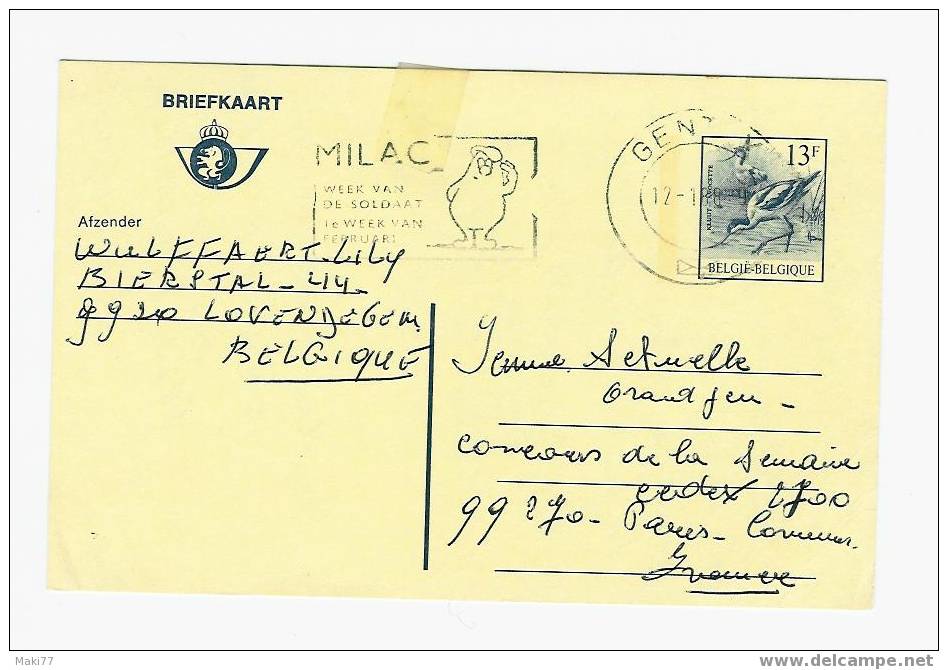 BRIEFKAART
MILAC
WEEK VAN
DE SOLDAAT
1e WEEK VAN
FEBRUARI
GENT
12-1
13F
KLUUT AVOCETTE
BELGIË-BELGIQUE
Afzender
WULFFAERT-LILY
BIERSTAL-44-
9920 LOVENDEGEM
BELGIQUE
Actuelle
Grand jeu -
concours de la Semaine
cedex 2700
99270- Paris-
France
Maki77
www.delcampe.net